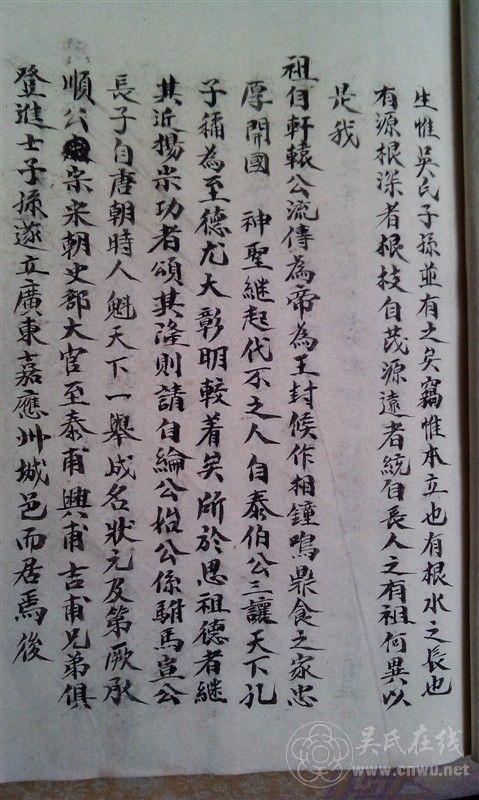 生惟吳氏子孫並有之矣竊惟本立也有根水之長也
有源根深者根枝自茂源遠者統自長人之有祖何異以
是我
祖自軒轅公流傳為帝為王封候作相鐘鳴鼎食之家忠
厚開國 神聖繼起代不之人自泰伯公三讓天下孔
子稱為至德尤大彰明較着矣所於思祖德者継
其近揚宗功者頌其隆則請自綸公始公係駙馬宣公
長子自唐朝時人魁天下一舉成名狀元及第厥承
順公宗宋朝史部大官至泰甫興甫吉甫兄弟俱
登進士子孫遂立廣東嘉應州城邑而居焉後
吴氏在线
www.cnwu.net